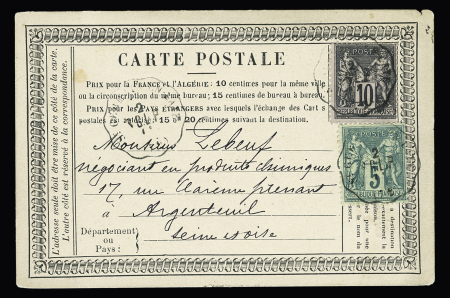 CARTE POSTALE
PRIX pour la FRANCE et l'ALGÉRIE: 10 centimes pour la même ville
ou la circonscription du même bureau; 15 centimes de bureau à bureau.
PRIX pour les PAYS ÉTRANGERS avec lesquels l'échange des Cart s
postales est 15 20 centimes suivant la destination.
POST
10
5
Monsieur Lebeuf
négociant en produits chimiques
17, rue prenant
à Argenteuil
Département
ou
Pays:
Seine et oise
L'adresse seule doit être mise de ce côté de la carte.
L'autre côté est réservé à la correspondance.